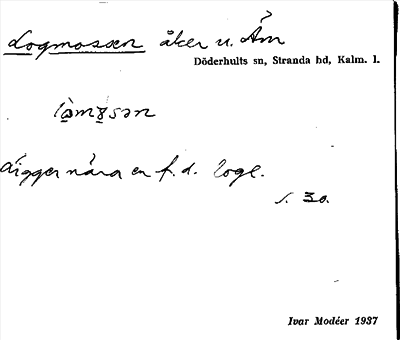 Logmossen åker u. Äm
Döderhults sn, Stranda hd, Kalm. l.
ligger nära en f.d. loge.
s. 30.
Ivar Modéer 1937